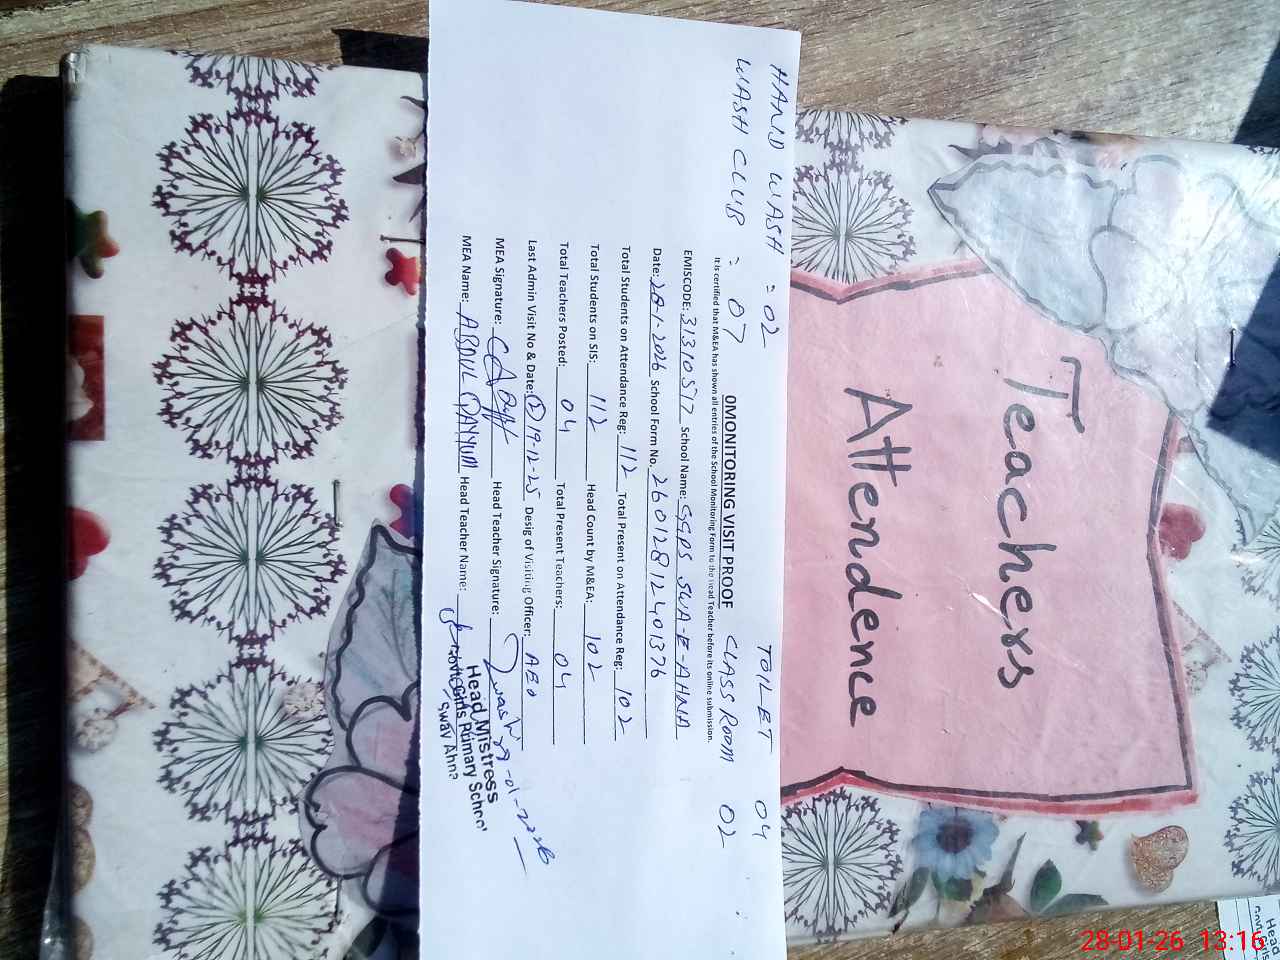 HAND WASH = 02 TOILET 04
WASH CLUB = 07 CLASS ROOM 02
0MONITORING VISIT PROOF
It is certified that M&EA has shown all entries of the School Monitoring Form to the Head Teacher before its online submission.
EMISCODE: 31310517 School Name: GGPS SWA-E-AHNA
Date: 28-1-2026 School Form No. 26012812401376
Total Students on Attendance Reg: 112 Total Present on Attendance Reg: 102
Total Students on SIS: 112 Head Count by M&EA: 102
Total Teachers Posted: 04 Total Present Teachers: 04
Last Admin Visit No & Date: (2) 19-12-25 Desig of Visiting Officer: AEO
MEA Signature: Head Teacher Signature:
MEA Name: ABDUL QAYYUM Head Teacher Name:
Head Mistress
Govt. Girls Primary School
Sway Ahna
Teachers
Attendence
Head
28-01-26 13:16